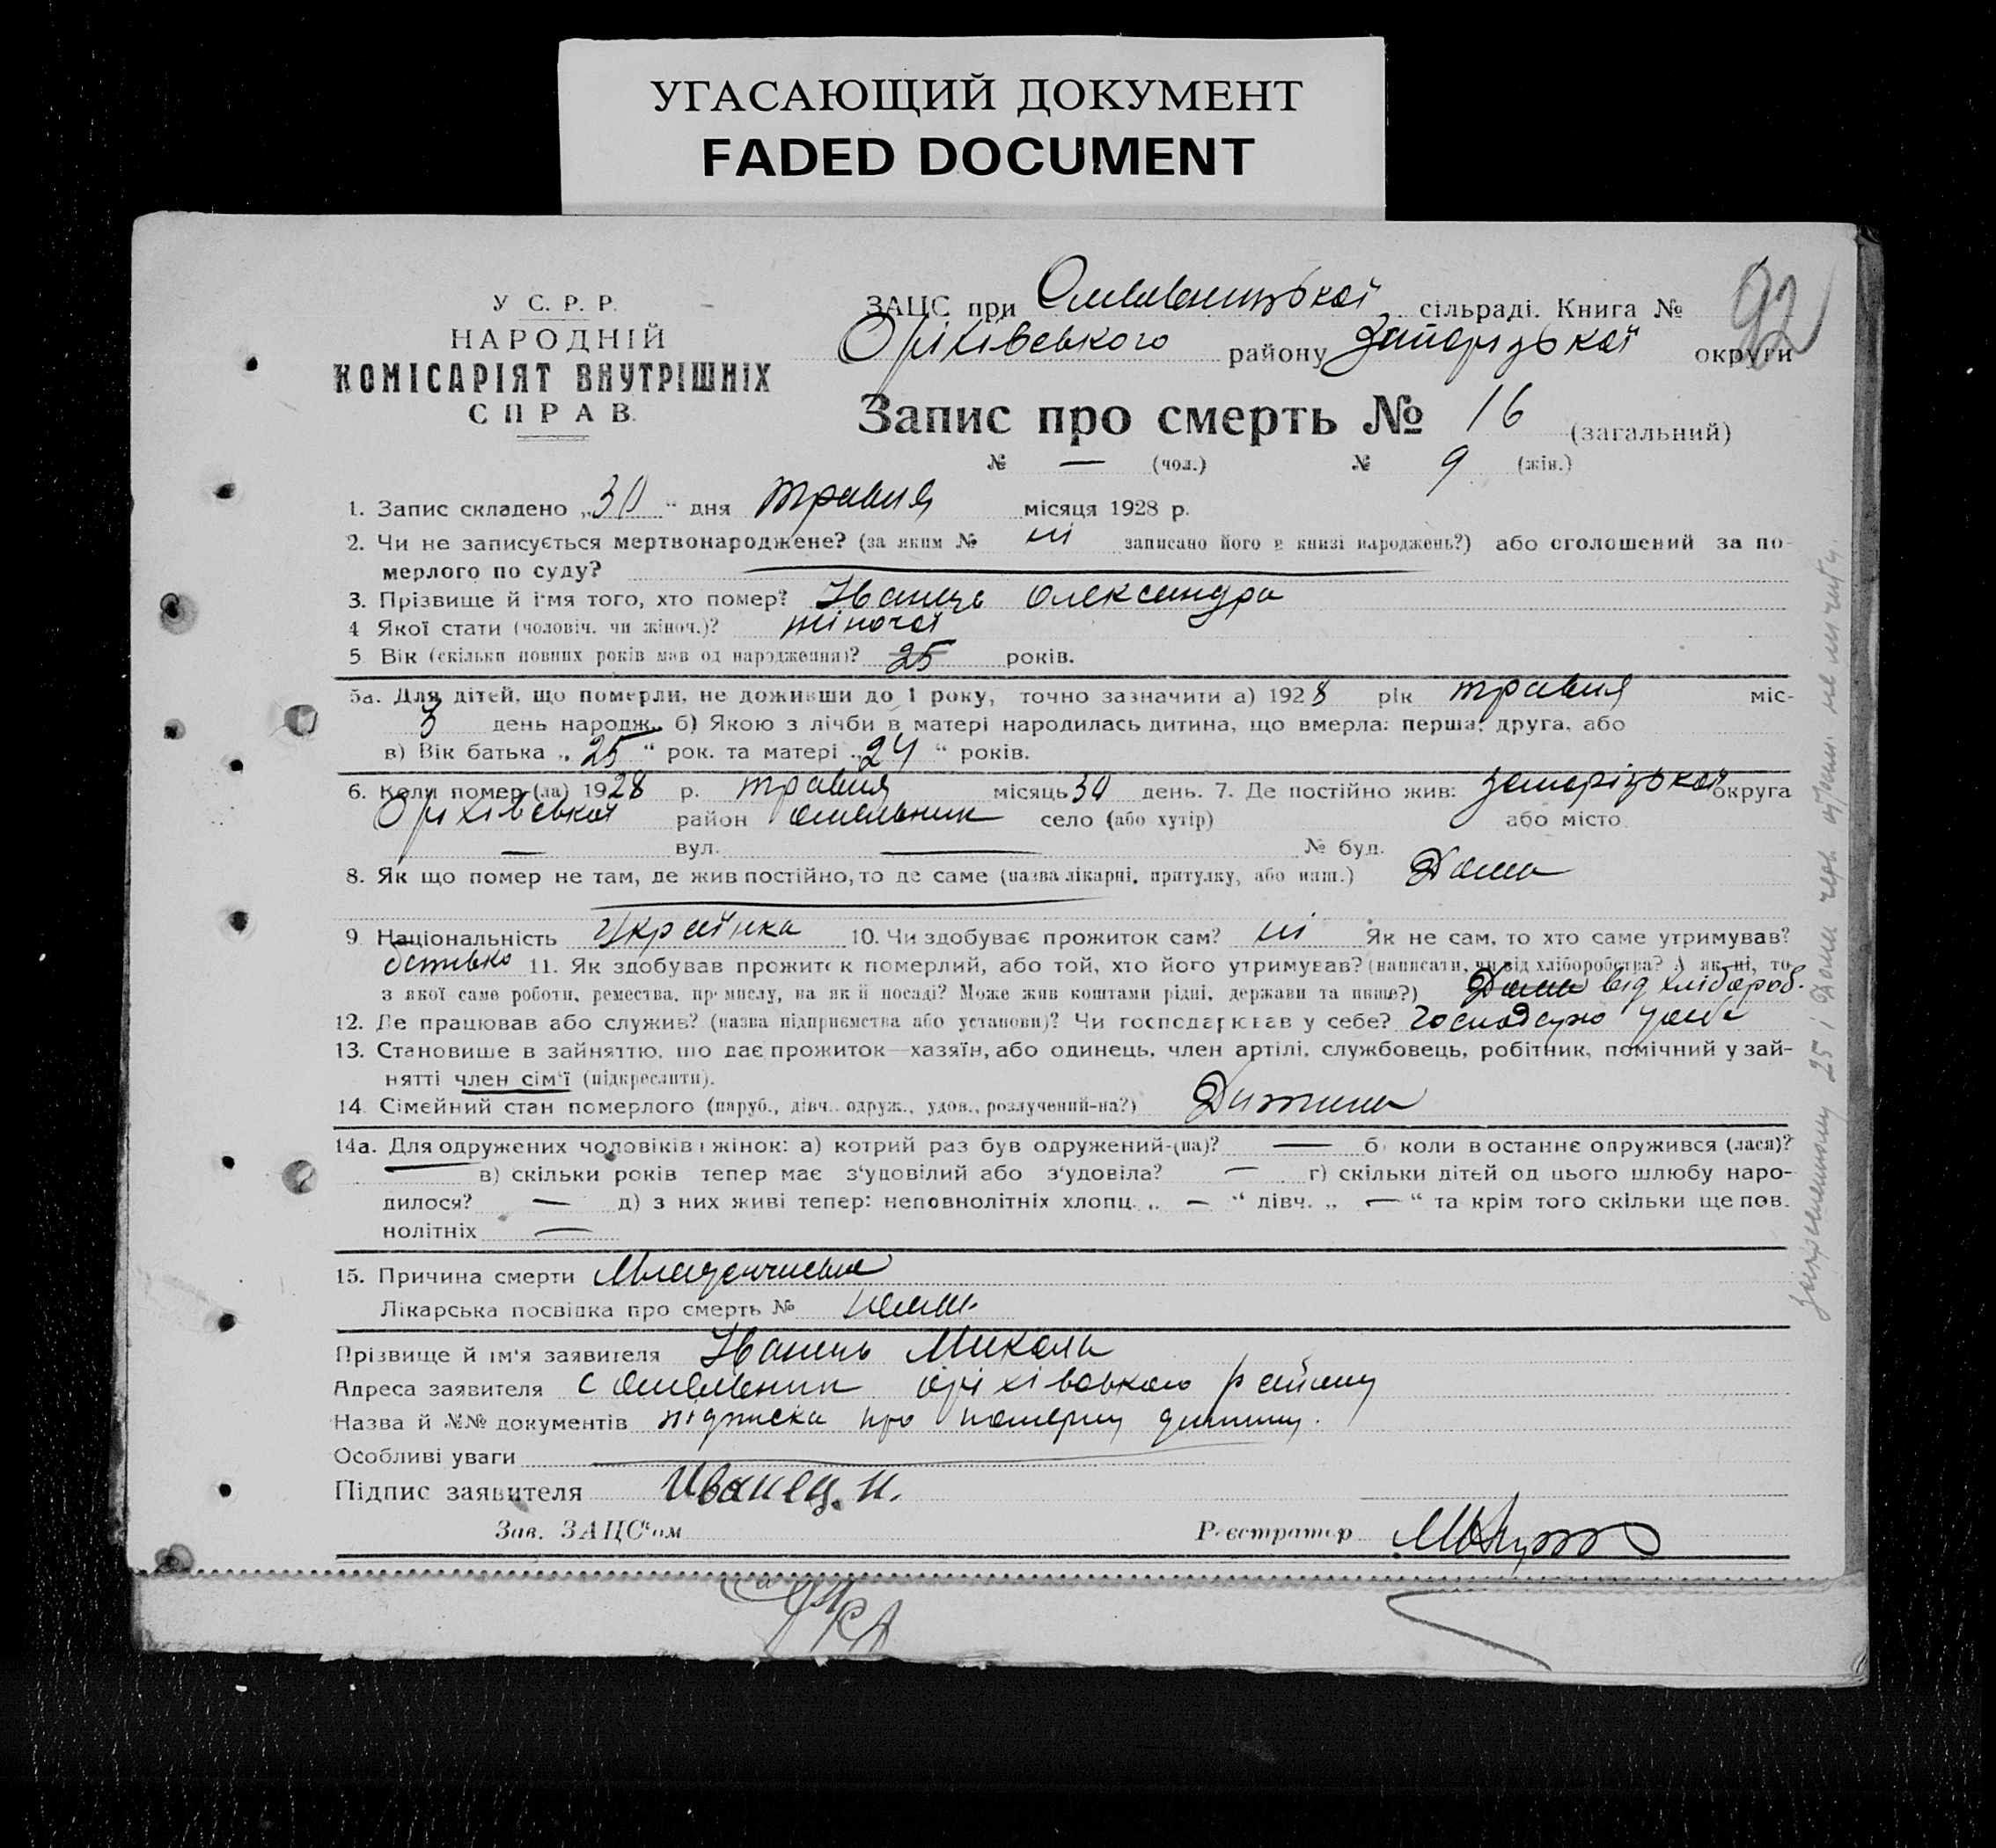 УГАСАЮЩИЙ ДОКУМЕНТ
FADED DOCUMENT
92
У С. Р. Р.
НАРОДНІЙ
КОМІСАРІЯТ ВНУТРІШНІХ
СПРАВ.
ЗАЦС при Омельницької сільраді. Книга №
Оріхівського району Запорізької округи
Запис про смерть № 16 (загальний)
№ — (чол.) № 9 (жін.)
1. Запис складено „30“ дня травня місяця 1928 р.
2. Чи не записується мертвонароджене? (за яким № ні записано його в книзі народжень?) або оголошений за по-
мерлого по суду?
3. Прізвище й ім'я того, хто помер? Іванець Олександра
4 Якої стати (чоловіч. чи жіноч.)? жіночої
5 Вік (скільки повних років мав од народження)? 25 років.
5а. Для дітей, що померли, не доживши до 1 року, точно зазначити а) 1928 рік травня міс-
3 день народж. б) Якою з лічби в матері народилась дитина, що вмерла: перша, друга, або
в) Вік батька „25“ рок. та матері „24“ років.
6. Коли помер (ла) 1928 р. травня місяць 30 день. 7. Де постійно жив: Запорізької округа
Оріхівської район Омельник село (або хутір) або місто
— вул. — № буд.
8. Як що помер не там, де жив постійно, то де саме (назва лікарні, притулку, або инш.) Дома
9. Національність Українка 10. Чи здобуває прожиток сам? ні Як не сам, то хто саме утримував?
батько 11. Як здобував прожиток померлий, або той, хто його утримував? (написати, чи від хліборобства? А як ні, то
з якої саме роботи, ремества, промислу, на якій посаді? Може жив коштами рідні, держави та инше?) Дома від хлібороб.
12. Де працював або служив? (назва підприємства або установи)? Чи господарював у себе? Господарю у себе
13. Становище в зайняттю, що дає прожиток—хазяїн, або одинець, член артілі, службовець, робітник, помічний у зай-
нятті член сім'ї (підкреслити).
14. Сімейний стан померлого (паруб., дівч. одруж., удов., розлучений-на?) Дитина
14а. Для одружених чоловіків і жінок: а) котрий раз був одружений-(на)? — б) коли в останнє одружився (лася)?
— в) скільки років тепер має з'удовілий або з'удовіла? — г) скільки дітей од цього шлюбу наро-
дилося? — д) з них живі тепер: неповнолітніх хлопц. „ — “ дівч. „ — “ та крім того скільки ще пов.
нолітніх —
15. Причина смерти Младенчиська
Лікарська посвідка про смерть № немає
Прізвище й ім'я заявителя Іванець Микола
Адреса заявителя с Омельник Оріхівського району
Назва й №№ документів підписка про помершу дитину.
Особливі уваги
Підпис заявителя Иванец. Н.
Зав. ЗАЦС'ом Реєстратор